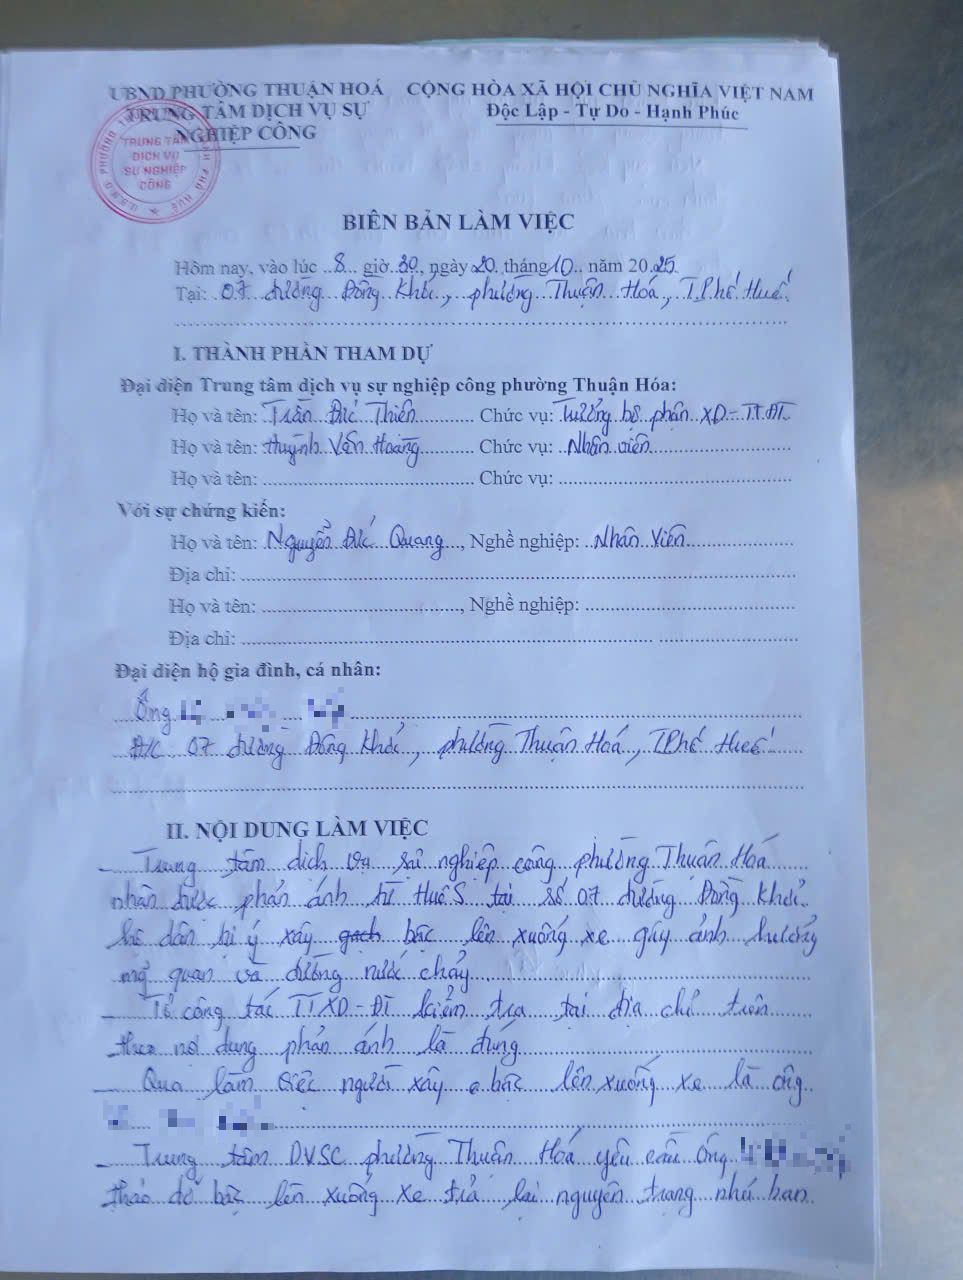 UBND PHƯỜNG THUẬN HOÁ
TRUNG TÂM DỊCH VỤ SỰ
NGHIỆP CÔNG
CỘNG HÒA XÃ HỘI CHỦ NGHĨA VIỆT NAM
Độc Lập - Tự Do - Hạnh Phúc
TRUNG TÂM
DỊCH VỤ
SỰ NGHIỆP
CÔNG
BIÊN BẢN LÀM VIỆC
Hôm nay, vào lúc 8 giờ 30, ngày 20 tháng 10 năm 2025
Tại: 07 đường Đồng Khởi, phường Thuận Hoá, T.Phố Huế
I. THÀNH PHẦN THAM DỰ
Đại diện Trung tâm dịch vụ sự nghiệp công phường Thuận Hóa:
Họ và tên: Trần Đức Thiên Chức vụ: Trưởng bộ phận XD-TTĐT
Họ và tên: Huỳnh Văn Hoàng Chức vụ: Nhân viên
Họ và tên: Chức vụ:
Với sự chứng kiến:
Họ và tên: Nguyễn Đức Quang, Nghề nghiệp: Nhân Viên
Địa chỉ:
Họ và tên: , Nghề nghiệp:
Địa chỉ:
Đại diện hộ gia đình, cá nhân:
Ông
Đ/C 07 đường Đồng Khởi, phường Thuận Hoá, T.Phố Huế
II. NỘI DUNG LÀM VIỆC
- Trung tâm dịch vụ sự nghiệp công phường Thuận Hoá
nhận được phản ánh từ HuếS tại số 07 đường Đồng Khởi
hộ dân tự ý xây gạch bậc lên xuống xe gây ảnh hưởng
mỹ quan và đường nước chảy
- Tổ công tác TTXD-ĐT kiểm tra tại địa chỉ trên
theo nội dung phản ánh là đúng
- Qua làm việc người xây bậc lên xuống xe là ông
- Trung tâm DVSC phường Thuận Hoá yêu cầu ông
tháo dỡ bậc lên xuống xe trả lại nguyên trạng như ban